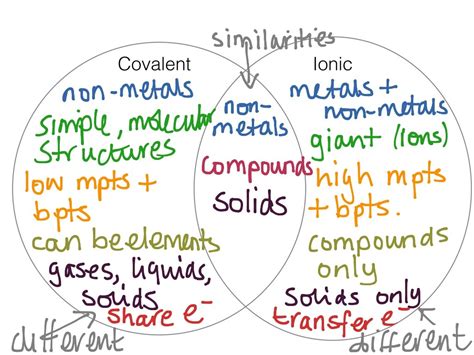 similarities
Covalent
non-metals
simple, molecular
structures
low mpts +
bpts
can be elements
gases, liquids,
solids
share e⁻
different
non-
metals
compounds
solids
Ionic
metals +
non-metals
giant (ions)
high mpts
+ bpts.
compounds
only
solids only
transfer e⁻
different